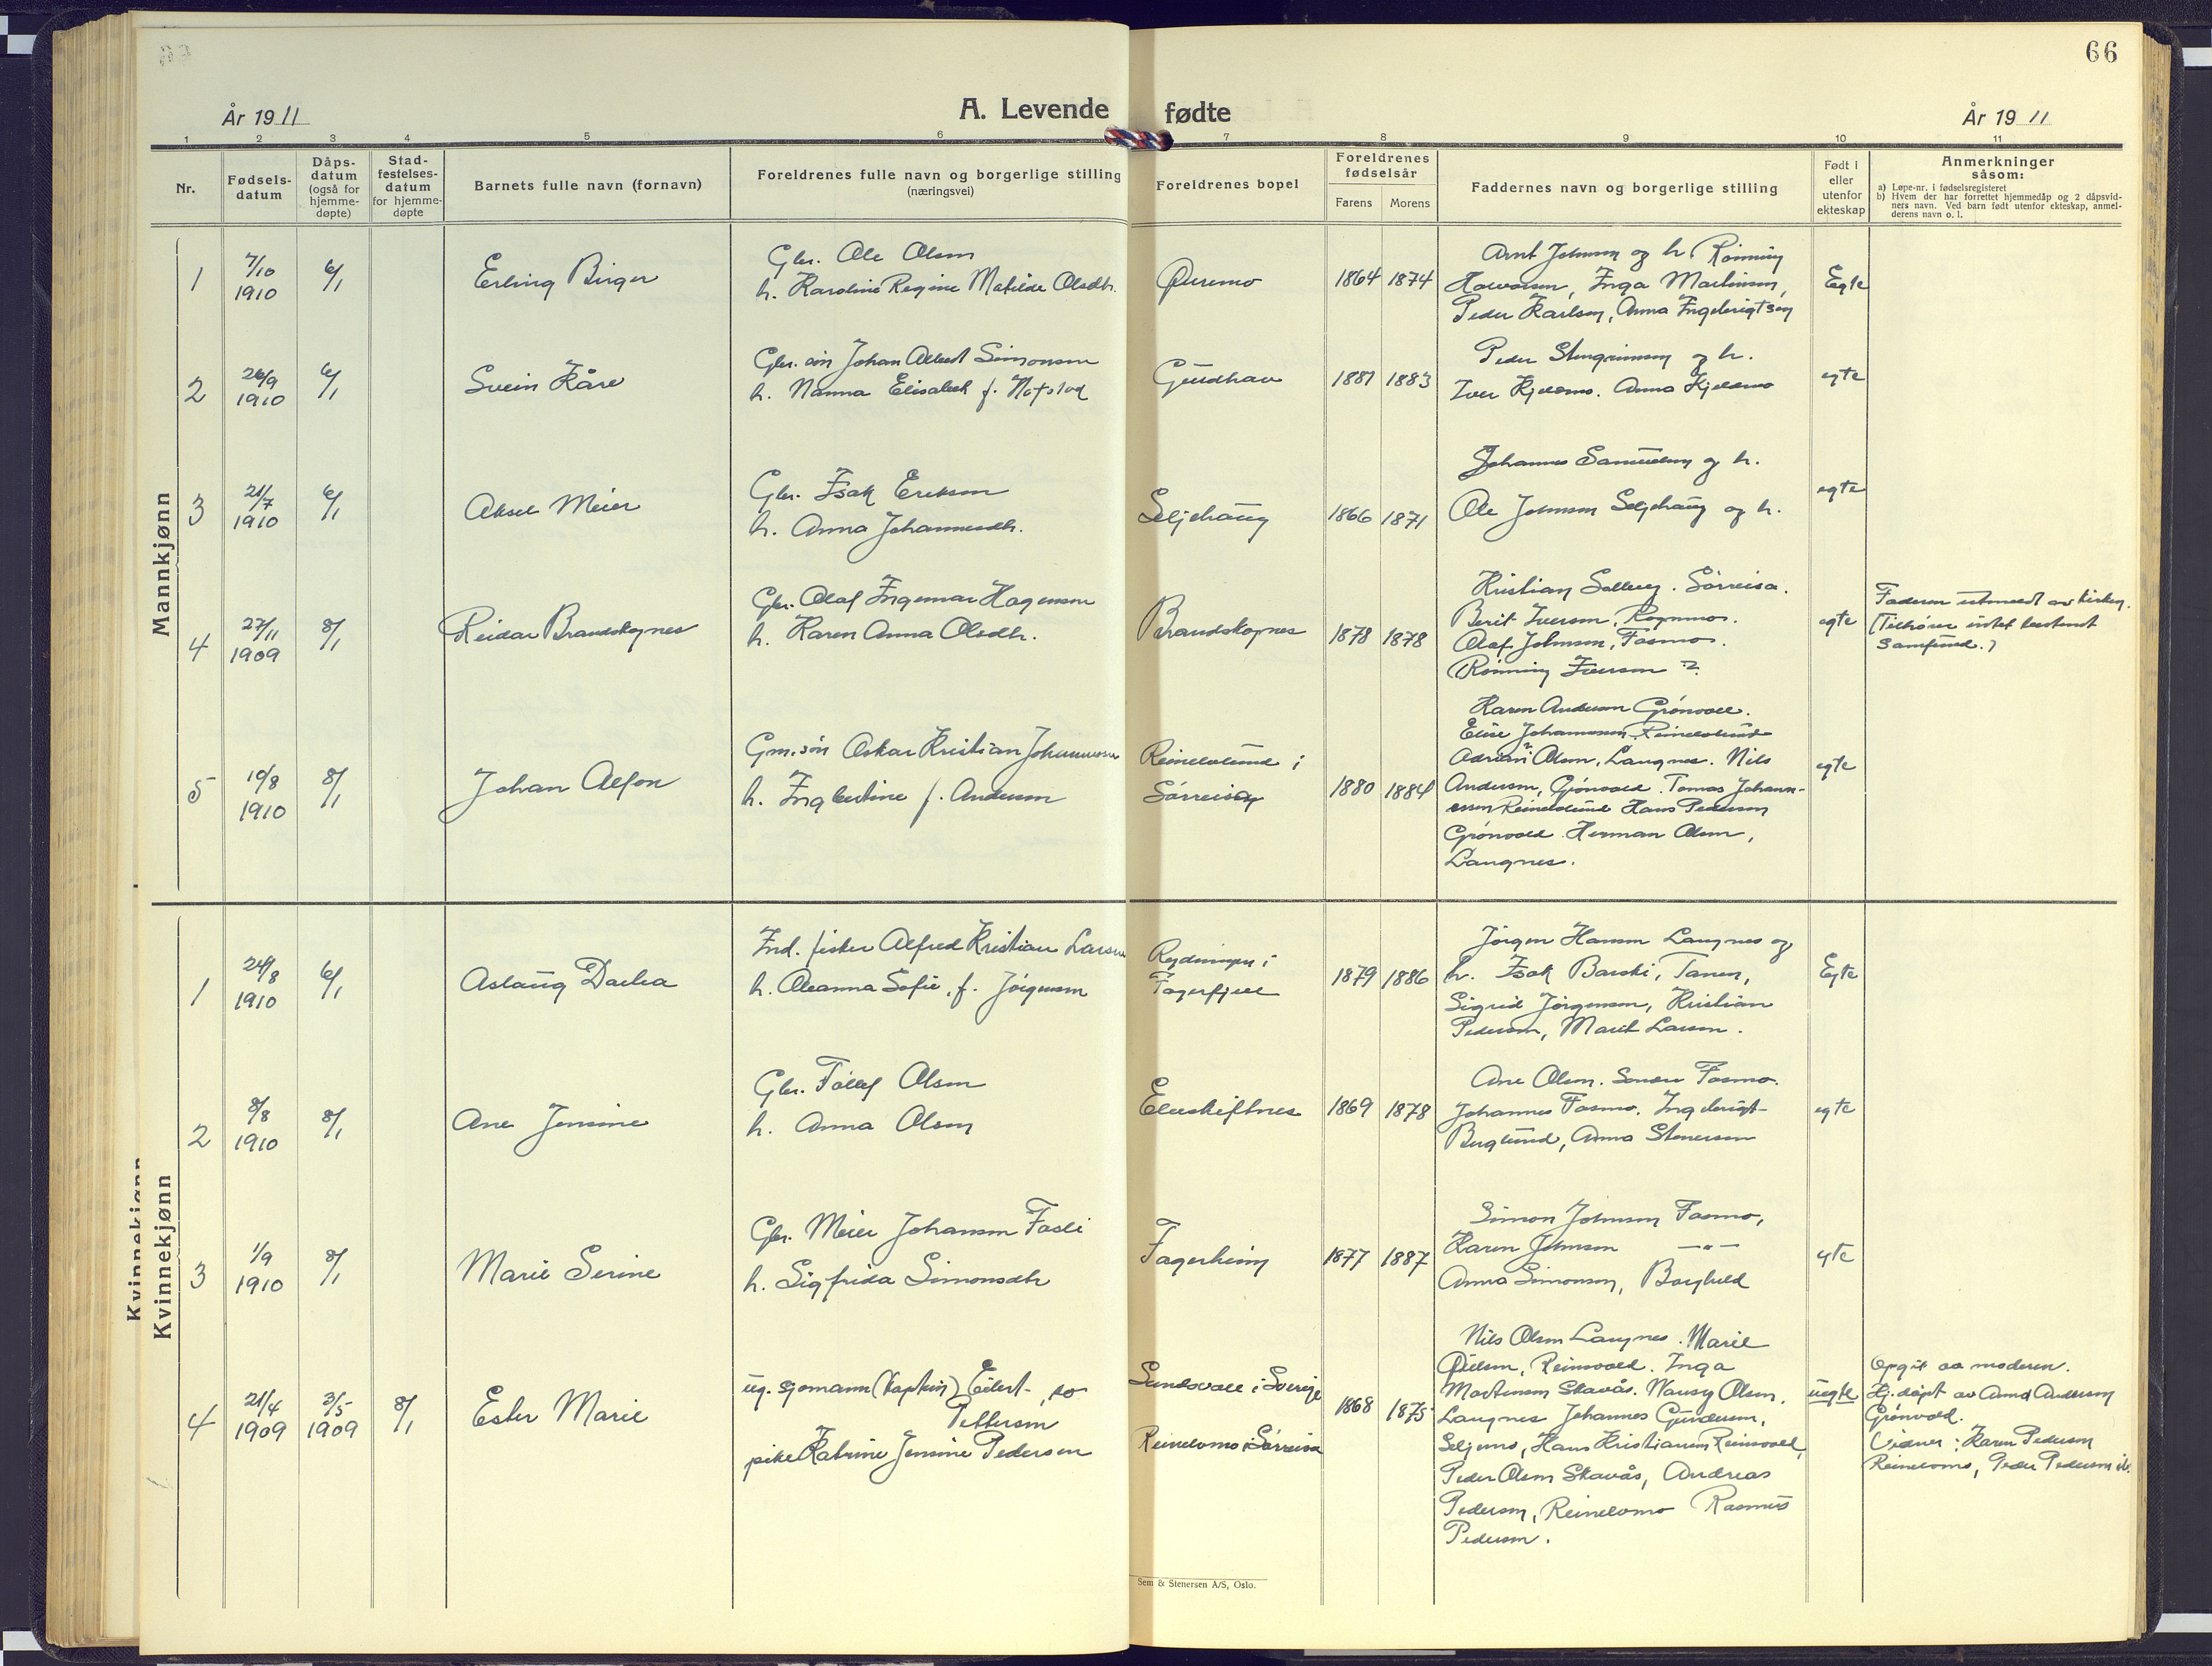 66
År 1911
A. Levende fødte
År 1911
1 2 3 4 5 6 7 8 9 10 11
Nr.
Fødsels-
datum
Dåps-
datum
(også for
hjemme-
døpte)
Stad-
festelses-
datum
for hjemme-
døpte
Barnets fulle navn (fornavn)
Foreldrenes fulle navn og borgerlige stilling
(næringsvei)
Foreldrenes bopel
Foreldrenes
fødselsår
Farens Morens
Faddernes navn og borgerlige stilling
Født i
eller
utenfor
ekteskap
Anmerkninger
såsom:
a) Løpe-nr. i fødselsregisteret
b) Hvem der har forrettet hjemmedåp og 2 dåpsvid-
ners navn. Ved barn født utenfor ekteskap, anmel-
derens navn o. l.
Mannkjønn
1
7/10
1910
6/1
Erling Birger
Gbr. Ole Olsen
h. Karoline Regine Matilde Olsdtr.
1864 1874
Arnt Johnsen og h. Rønning
Halvorsen, Inga Martinsen,
Peder Karlsen, Anna Ingebrigtsen
Egte
2
26/9
1910
6/1
Svein Kåre
Gbr. søn Johan Albert Simonsen
h. Nanna Elisabeth f. Hofsløt
Gundhav
1881 1883
Peder Steingrimsen og h.
Iver Kjelmo. Anna Kjelmo
egte
3
21/7
1910
6/1
Aksel Meier
Gbr. Isak Eriksen
h. Anna Johannesdtr.
Seljehaug
1866 1871
Johannes Samuelsen og h.
Ole Johnsen Seljehaug og h.
egte
4
27/11
1909
8/1
Reidar Brandskognes
Gbr. Olaf Ingemar Hagensen
h. Karen Anna Olsdtr.
Brandskognes
1878 1878
Kristian Solberg. Sørreisa.
Berit Iversen, Rognmo.
Olaf Johnsen, Fosmo.
Rønning Iversen ?
egte
Faderen utmeldt av kirken.
(Tilhører intet bestemt
samfund.)
5
10/8
1910
8/1
Johan Alfon
Gm.søn Oskar Kristian Johannessen
h. Ingbertine f. Andersen
Reinelvlund i
Sørreisa
1880 1884
Karen Andersen Grønvold.
Elise Johannessen Reinelvlund
Adrian Olsen, Langnes. Nils
Andersen, Grønvold. Tomas Johann-
essen Reinelvlund Hans Pedersen
Grønvold. Herman Olsen,
Langnes.
egte
Kvinnekjønn
Kvinnekjønn
1
24/8
1910
6/1
Aslaug Dorlea
Ind. fisker Alfred Kristian Larsen
h. Oleanna Sofie, f. Jørgensen
Rydningen i
Fagerfjell
1879 1886
Jørgen Hansen Langnes og
h. Isak Barski, Tanen,
Sigrid Jørgensen, Kristian
Pedersen, Marit Larsen.
Egte
2
8/8
1910
8/1
Ane Jensine
Gbr. Tollef Olsen
h. Anna Olsen
Elveskiftnes
1869 1878
Ane Olsen. Fosmo.
Johannes Fosmo. Ingebrigt
Berglund, Anna Stenersen
egte
3
1/9
1910
8/1
Marie Serine
Gbr. Meier Johansen Fosli
h. Sigfrida Simonsdtr
Fagerheim
1877 1887
Simon Johnsen Fosmo,
Karen Johnsen —"—
Anna Simonsen, Borghild
egte
4
21/4
1909
3/5
1909
8/1
Ester Marie
ug. sjømann (kaptein) Eilert
Pettersen
pike Katrine Jensine Pedersen
Sundsvall i Sverige
Reinelvmo i Sørreisa
1868 1875
Nils Olsen Langnes. Marie
Reinvold. Inga
Mortensen Skavås. Nansy Olsen,
Langnes Johannes Gundersen,
Seljemo, Hans Kristiansen Reinvold,
Peder Olsen Skavås, Andreas
Pedersen, Reinelvmo Rasmus
Pedersen.
uegte
Opgit av moderen.
Hj. døpt av Anna Andersen
Grønvold.
Vidner: Karen Pedersen
Reinelvmo, Peder Pedersen ib.
Sem & Stenersen A/S, Oslo.